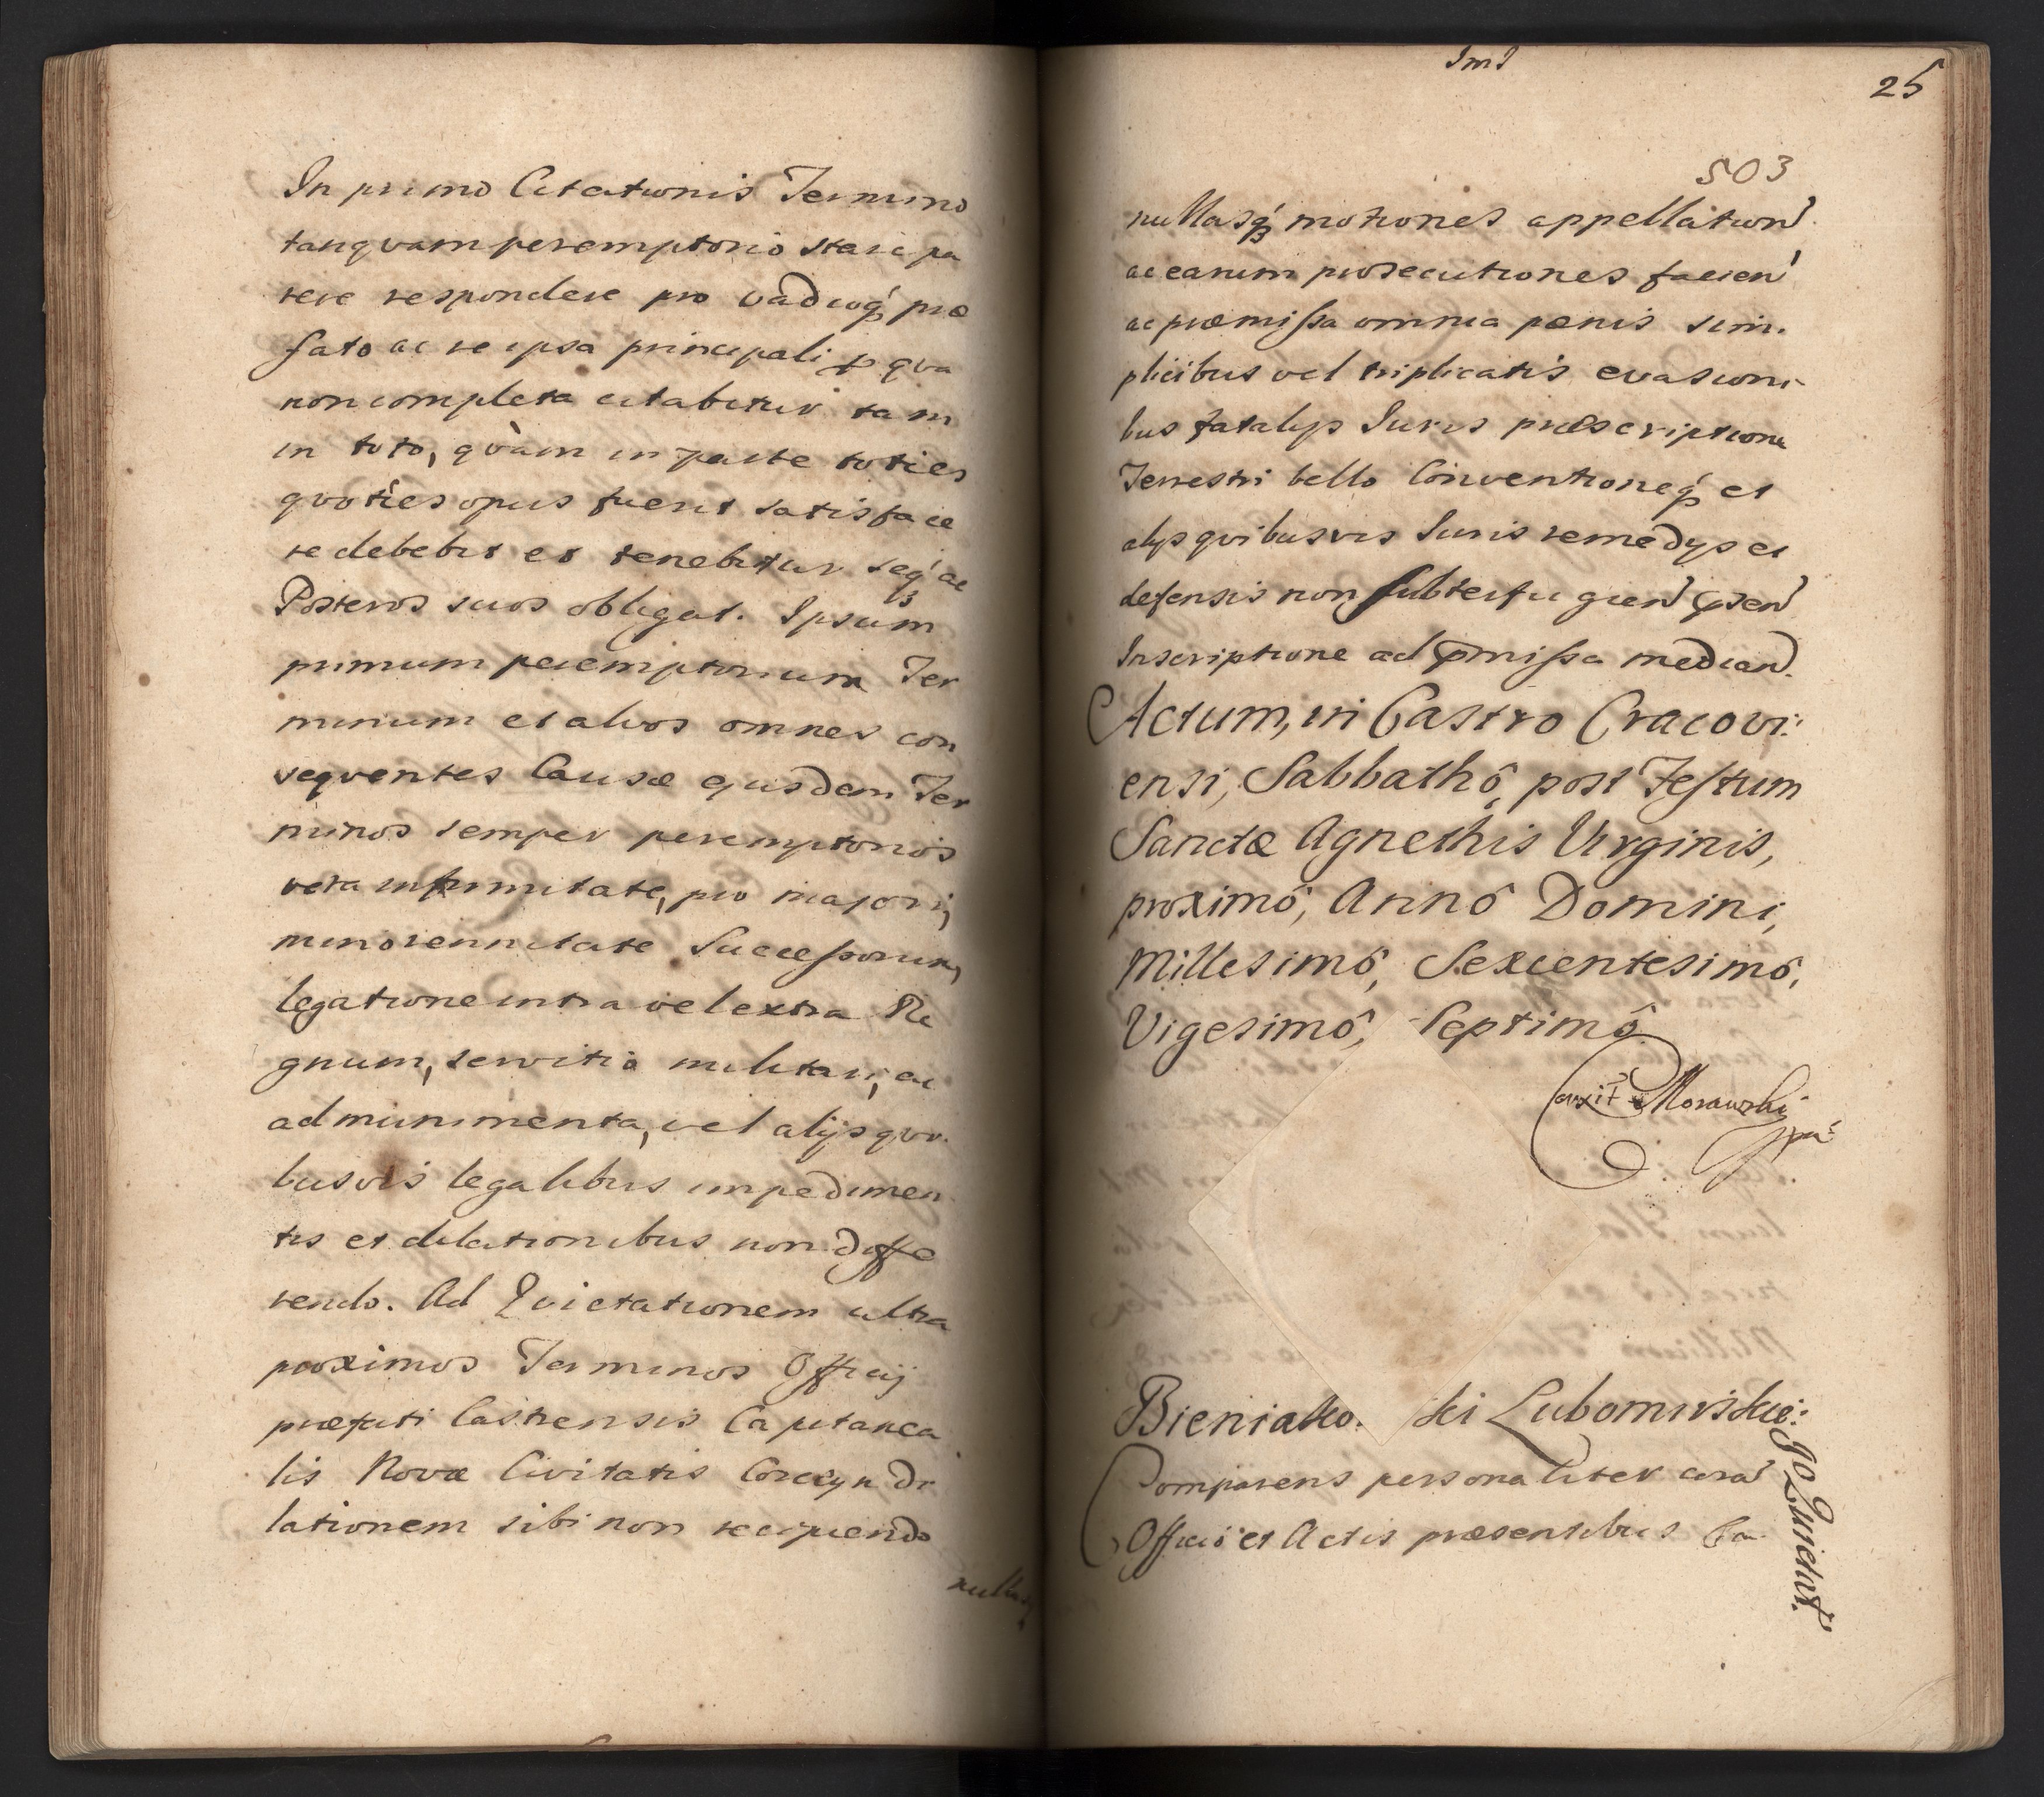 In primo Citationis Termino
tanqvam peremptorio stare pa
rere respondere pro vadioq́ præ
fato ac re ipsa principali p qva
non completa citabitur tam
in toto, qvàm in parte toties
qvoties opus fuerit satisface
re debebit et tenebitur seq́ ac
Posteros suos obligat. Ipsum
primum peremptorium Ter
minum et alios omnes con
seqventes Causæ ejusdem Ter
minos semper peremptorios
vera infirmitate, pro majori,
minorennitate Successorum,
legatione intra vel extra Re
gnum, servitio militari, ac
ad munimenta, vel alijs qvi
busvis legalibus impedimen
tis et dilationibus non diffe
rendo. Ad Qvietationem ultra
proximos Terminos Officij
præfati Castrensis Capitanea
lis Novæ Civitatis Corczyn Di
lationem sibi non recipiendo
nullasq́
25
503
nullasq́ motiones appellation̄
ac earum prosecutiones facien̄
ac præmissa omnia pænis sim.
plicibus vel triplicatis evasioni
bus fatalijs Juris præscriptione
Terrestri bello Conventioneq́ et
alijs qvibusvis Juris remedijs et
defensis non subterfugien̄ p̄sen̄
Inscriptione ad p̄missa median̄.
Actum, in Castro Cracovi:
ensi, Sabbathô, post Festum
Sanctæ Agnethis Virginis,
proximô, Annô Domini,
Millesimô, Sexcentesimô,
Vigesimô, Septimô.
Morawski
Bieniako. ski Lubomirskie:
Comparens personaliter corā
Officiô et Actis præsentibus Ca
Io Quietat.